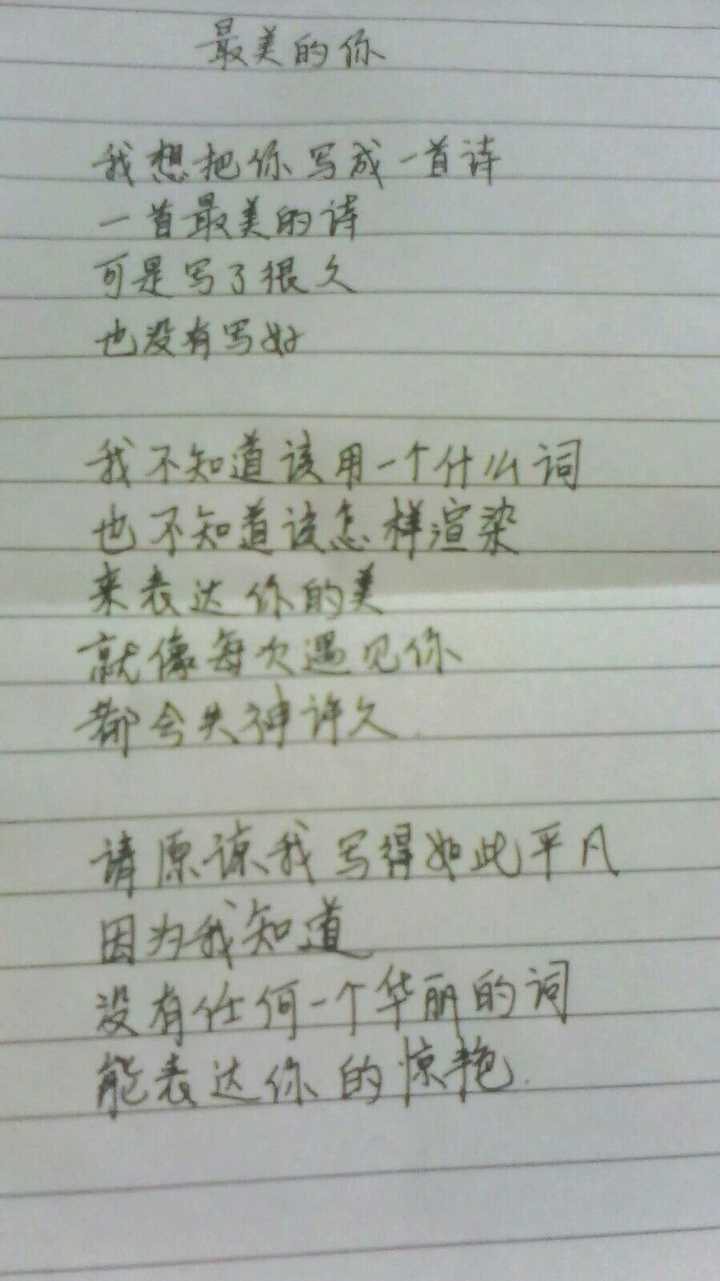 最美的你
我想把你写成一首诗
一首最美的诗
可是写了很久
也没有写好
我不知道该用一个什么词
也不知道该怎样渲染
来表达你的美
就像每次遇见你
都会失神许久.
请原谅我写得如此平凡
因为我知道
没有任何一个华丽的词
能表达你的惊艳.